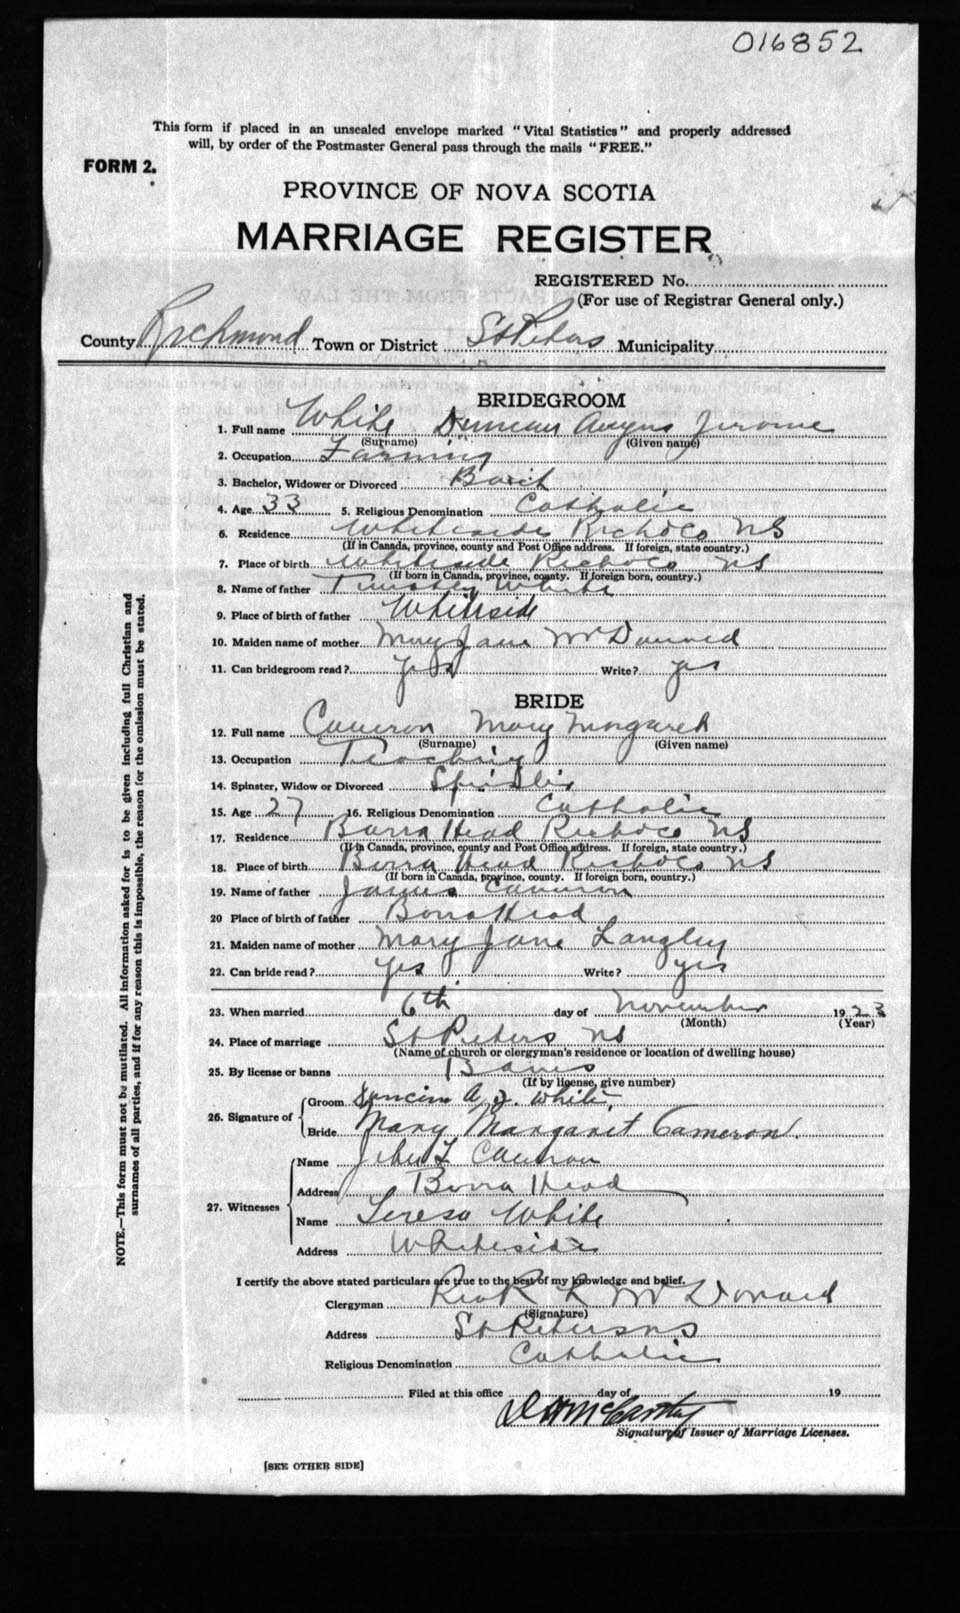 016852
This form if placed in an unsealed envelope marked "Vital Statistics" and properly addressed
will, by order of the Postmaster General pass through the mails "FREE."
FORM 2.
PROVINCE OF NOVA SCOTIA
MARRIAGE REGISTER
REGISTERED No.
(For use of Registrar General only.)
County Richmond Town or District St Peters Municipality
BRIDEGROOM
1. Full name White Duncan Angus Jerome
(Surname) (Given name)
2. Occupation Farming
3. Bachelor, Widower or Divorced Bach
4. Age 33 5. Religious Denomination Catholic
6. Residence Whiteside Rich Co NS
(If in Canada, province, county and Post Office address. If foreign, state country.)
7. Place of birth Whiteside Rich Co NS
(If born in Canada, province, county. If foreign born, country.)
8. Name of father Timothy White
9. Place of birth of father Whiteside
10. Maiden name of mother Mary Jane McDonald
11. Can bridegroom read? Yes Write? yes
BRIDE
12. Full name Cameron Mary Margaret
(Surname) (Given name)
13. Occupation Teaching
14. Spinster, Widow or Divorced
15. Age 27 16. Religious Denomination Catholic
17. Residence Barra Head Rich Co NS
(If in Canada, province, county and Post Office address. If foreign, state country.)
18. Place of birth Barra Head Rich Co NS
(If born in Canada, province, county. If foreign born, country.)
19. Name of father James Cameron
20 Place of birth of father Barra Head
21. Maiden name of mother Mary Jane Langley
22. Can bride read? Yes Write? yes
23. When married 6th day of November 1923
(Month) (Year)
24. Place of marriage St Peters NS
(Name of church or clergyman's residence or location of dwelling house)
25. By license or banns Banns
(If by license, give number)
26. Signature of
Groom Duncan A. J. White,
Bride Mary Margaret Cameron.
27. Witnesses
Name John L Cameron
Address Barra Head
Name Teresa White
Address Whiteside
I certify the above stated particulars are true to the best of my knowledge and belief.
Clergyman Rev R L McDonald
(Signature)
Address St Peters NS
Religious Denomination Catholic
Filed at this office day of 19
McCarthy
Signature of Issuer of Marriage Licenses.
[SEE OTHER SIDE]
NOTE.—This form must not be mutilated. All information asked for is to be given including full Christian and
surnames of all parties, and if for any reason this is impossible, the reason for the omission must be stated.